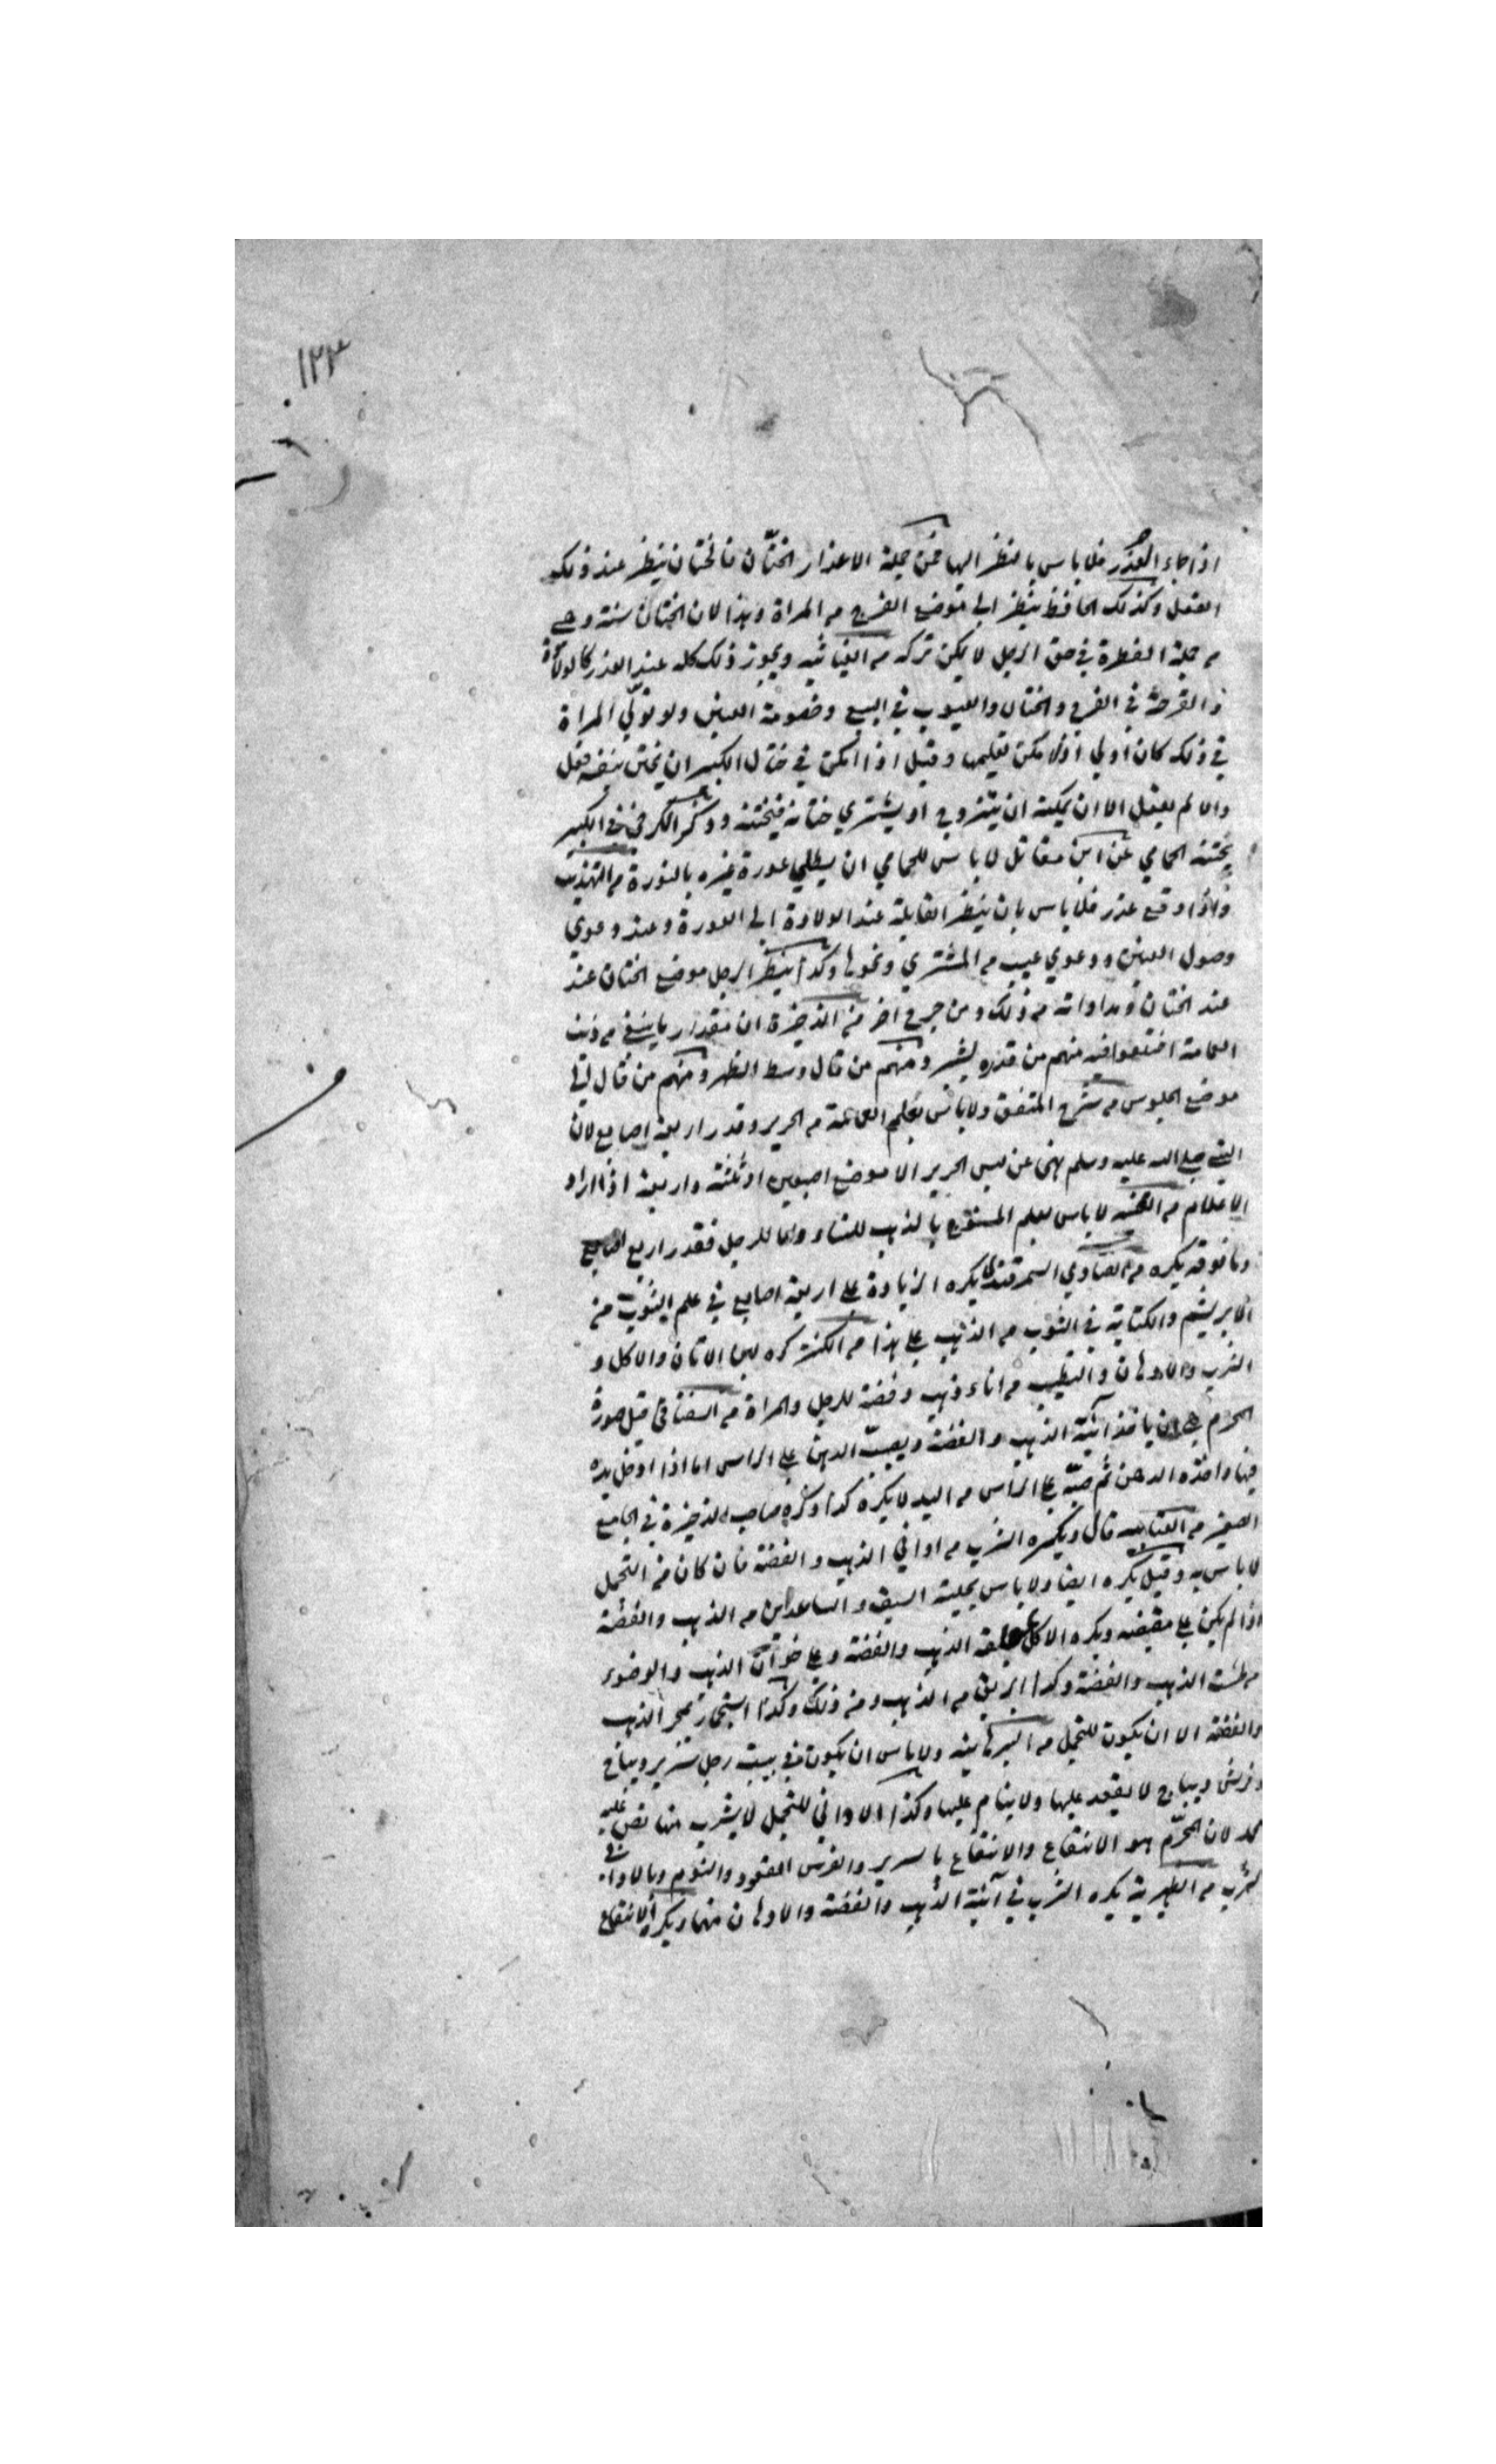 ١٢٣
اذا جاء العذر فلا باس بالنظر اليها فمن جملة الاعذار الختان فالختان ينظر عند ذلك
الفعل وكذلك الحافظ ينظر الى موضع الفرج من المراة وهذا لان الختان سنة وهي
من جملة الفطرة في حق الرجل لا يمكن تركه من الغياثيه ويجوز ذلك كله عند العذر كالولادة
والقرحة في الفرج والختان والعيوب في البيع وخصومة العنين ولو تولي المراة
في ذلك كان اولي اولا مكن تعليمها وقيل اذا امكن في ختان الكبير ان يختن بنفسه فعل
والا لم يفعل الا ان يمكنه ان يتزوج او يشتري ختانة فيختنه وذكر الكرخي في الكبير
يختنه الحمامي عن ابن مقاتل لا باس للحمامي ان يطلي عورة غيره بالنورة من التهذيب
واذا وقع عذر فلا باس بان ينظر القابلة عند الولادة الى العورة وعند دعوي
وصول العنين ودعوي عيب من المشتري ونحوها وكذا ينظر الرجل موضع الختان عند
عند الختان ومداواته من ذلك ومن جرح اخر من الذخيرة ان مقدار ما ينبغي من ذنب
العمامة اختلفوا فيه منهم من قدره بشبر ومنهم من قال وسط الظهر ومنهم من قال الي
موضع الجلوس من شرح المتفق ولا باس بعلم العمامة من الحرير وقدر اربعة اصابع لان
النبي صلى الله عليه وسلم نهى عن لبس الحرير الا موضع اصبعين او ثلثة واربعة اذا اراد
الاعلام من لا باس بعلم المنسوج بالذهب للنساء واما للرجل فقدر اربع اصابع
وما فوقه يكره من الفتاوي السمرقندي يكره الزيادة على اربعة اصابع في علم الثوب من
الابريشم والكتابة في الثوب من الذهب علي هذا من الكنز كره لبن الاتان والاكل و
الشرب والادهان والتطيب من اناء ذهب وفضة للرجل والمراة من السغناقي قيل صورة
المحرم هي ان ياخذ آنية الذهب والفضة ويصب الدهن علي الراس اما اذا ادخل يده
فيها واخذه الدهن ثم صبه علي الراس من اليد لا يكره كذا ذكره صاحب الذخيرة في الجامع
الصغير من العتابيه قال ويكره الشرب من اواني الذهب والفضة فان كان من التجمل
لا باس به وقيل يكره ايضا ولا باس بحلية السيف والساعدين من الذهب والفضة
اذا لم يكن علي مقبضه ويكره الاكل بملعقة الذهب والفضة وعلي خوان الذهب والوضوء
من طست الذهب والفضة وكذا ابريق من الذهب ومن ذلك وكذا استجمار بمجمر الذهب
والفضة الا ان يكون للتجمل من البرهانيه ولا باس ان يكون في بيت رجل سرير ديباج
وفرش ديباج لا يقعد عليها ولا ينام عليها وكذا الاواني للتجمل لا يشرب منها نص عليه
محمد لان المحرم هو الانتفاع والانتفاع بالسرير والفرس القعود والنوم وبالاواني
الشرب من الظهيرية يكره الشرب في آنية الذهب والفضة والادهان منها ويكره الانتفاع